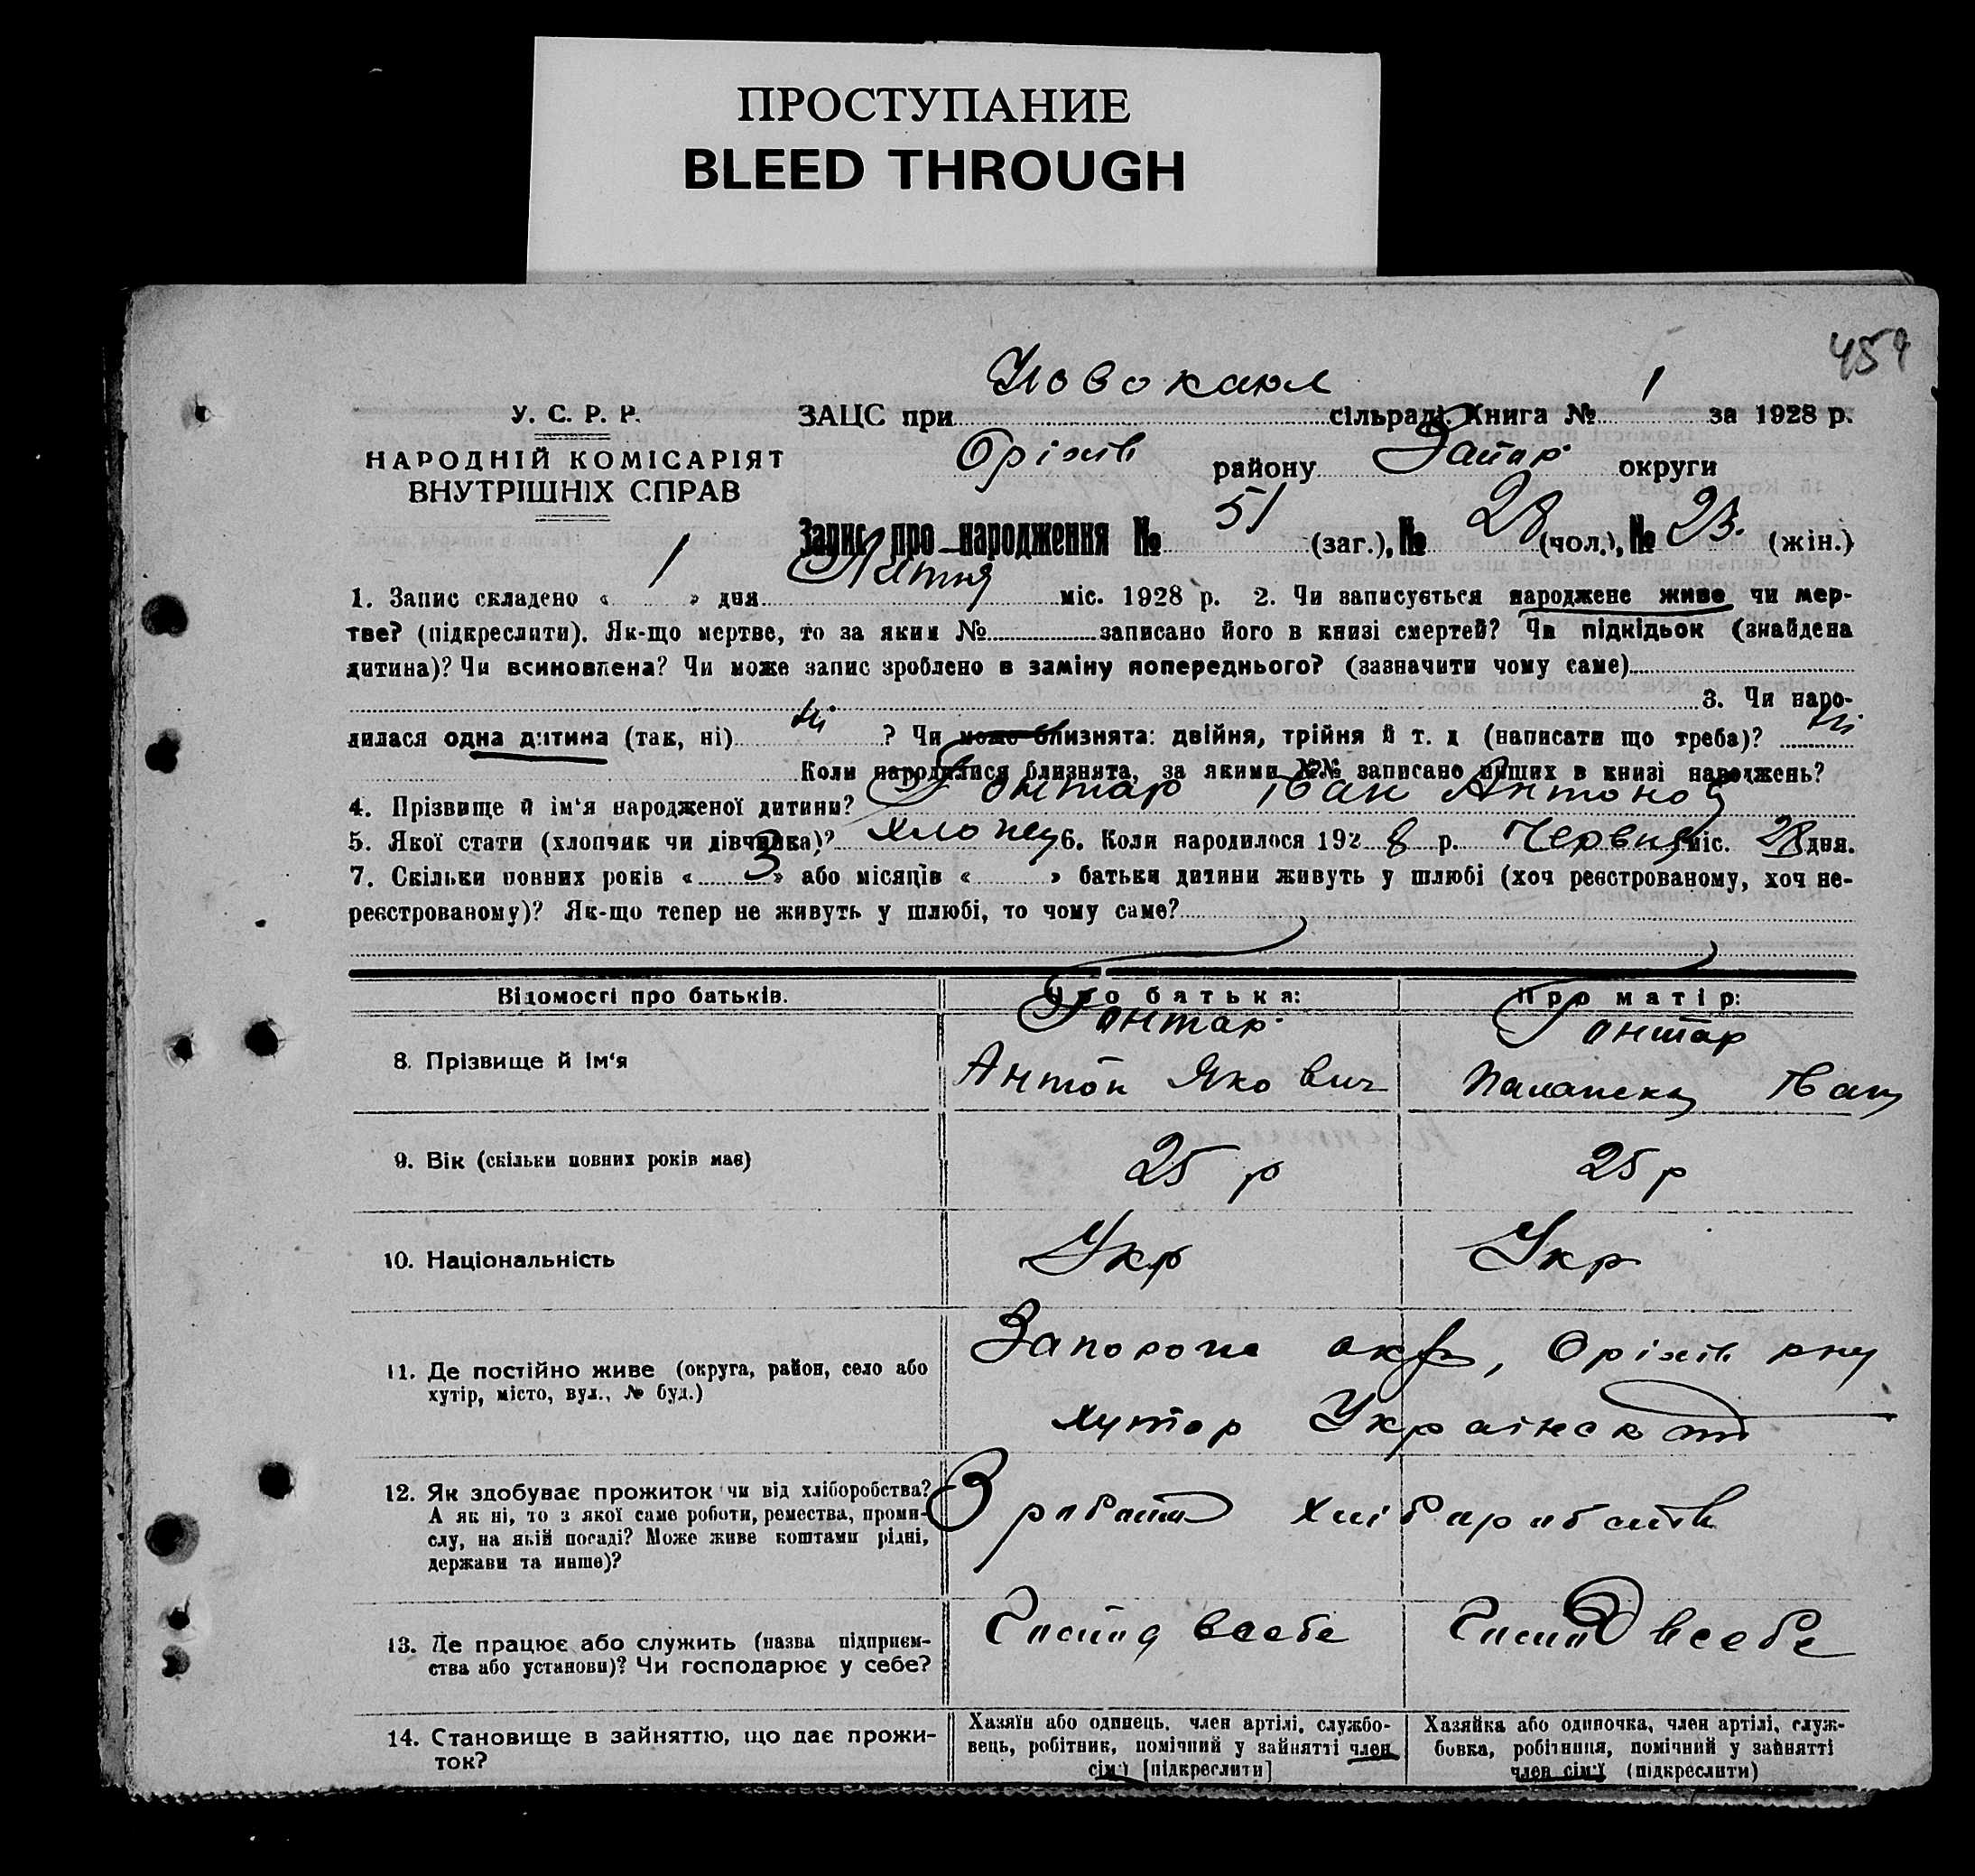 ПРОСТУПАНИЕ
BLEED THROUGH
459
У. С. Р. Р.
НАРОДНІЙ КОМІСАРІЯТ
ВНУТРІШНІХ СПРАВ
ЗАЦС при Новокарл сільраді. Книга № 1 за 1928 р.
Оріхів району Запор округи
Запис про народження № 51 (заг.), № 28 (чол.), № 23. (жін.)
1. Запис складено « 1 » дня Липня міс. 1928 р. 2. Чи записується народжене живе чи мер-
тве? (підкреслити). Як-що мертве, то за яким № записано його в книзі смертей? Чи підкідьок (знайдена
дитина)? Чи всиновлена? Чи може запис зроблено в заміну попереднього? (зазначити чому саме)
3. Чи наро-
дилася одна дитина (так, ні) ні ? Чи може близнята: двійня, трійня й т. д (написати що треба)? ні
Коли народилися близнята, за якими №№ записано инших в книзі народжень?
4. Прізвище й ім'я народженої дитини? Гонтар Іван Антонов
5. Якої стати (хлопчик чи дівчинка)? хлопец 6. Коли народилося 192 8 р. Червня міс. 28 дня.
7. Скільки повних років « 3 » або місяців « » батьки дитини живуть у шлюбі (хоч реєстрованому, хоч не-
реєстрованому)? Як-що тепер не живуть у шлюбі, то чому саме?
Відомості про батьків. Про батька: Про матір:
Гонтар Гонтар
8. Прізвище й ім'я Антон Якович Іван
9. Вік (скільки повних років має) 25 р 25 р
10. Національність Укр Укр
11. Де постійно живе (округа, район, село або
хутір, місто, вул., № буд.)
Запорожс окр, Оріхів рну
хутор Українск
12. Як здобуває прожиток чи від хліборобства?
А як ні, то з якої саме роботи, ремества, проми-
слу, на якій посаді? Може живе коштами рідні,
держави та инше)?
З работи хлібаработв
13. Де працює або служить (назва підприєм-
ства або установи)? Чи господарює у себе?
всебе всебе
14. Становище в зайняттю, що дає прожи-
ток?
Хазяїн або одинець, член артілі, службо-
вець, робітник, помічний у зайнятті член
сім'ї [підкреслити]
Хазяйка або одиночка, член артілі, служ-
бовка, робітниця, помічний у зайнятті
член сім'ї (підкреслити)